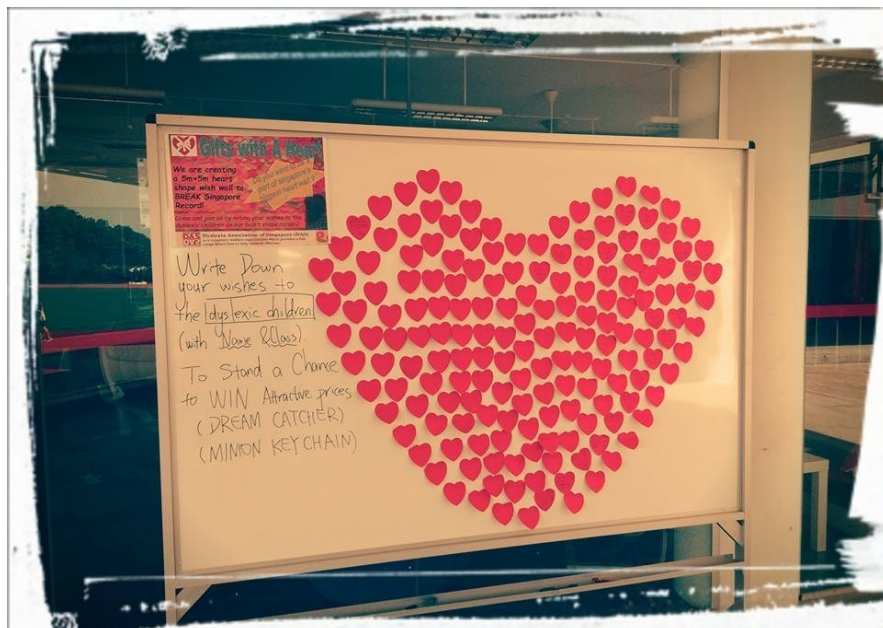 Gifts with A Heart
We are creating
a 5m×5m heart
shape wish wall to
BREAK Singapore
Record!
Do you want to be a
part of Singapore's
biggest heart wall?
Come and join us by noting your wishes to the
dyslexic children on our heart shape
DAS
Dyslexia Association of Singapore (DAS)
Write Down
your wishes to
the dyslexic children
(with Name & Class)
To Stand a Chance
to WIN Attractive prices
(DREAM CATCHER)
(MINION KEY CHAIN)